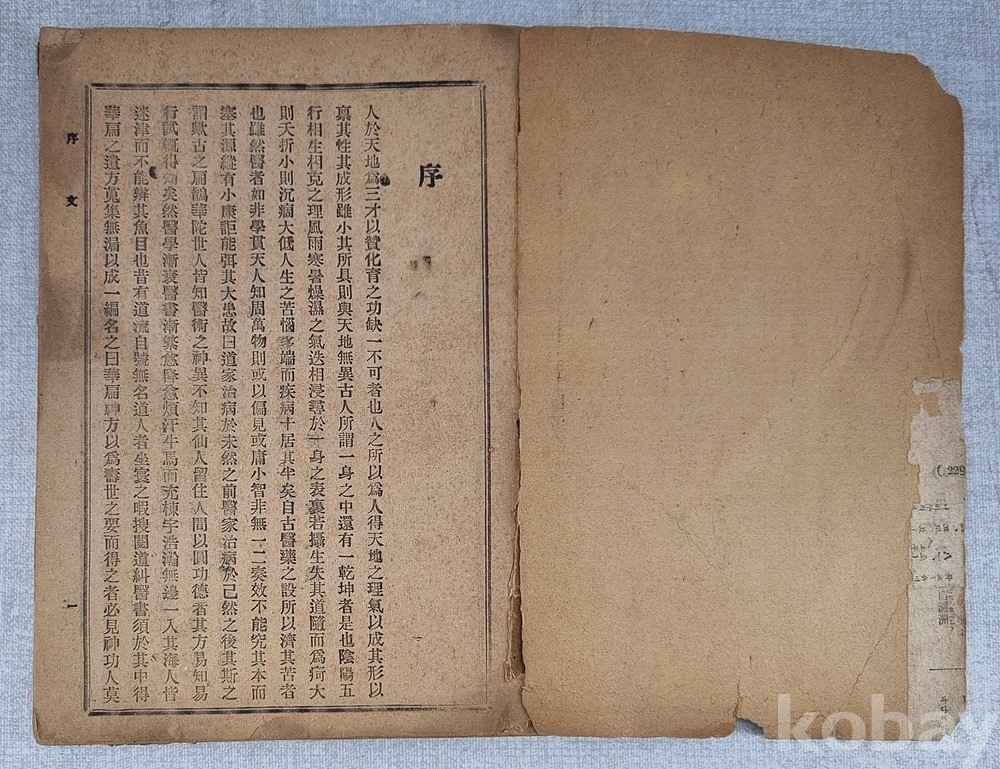 序
人於天地爲三才以贊化育之功缺一不可者也人之所以爲人得天地之理氣以成其形以
稟其性其成形雖小其所具則與天地無異古人所謂一身之中還有一乾坤者是也陰陽五
行相生相克之理風雨寒暑燥濕之氣迭相浸尋於一身之表裏若攝生失其道隨而爲疴大
則夭折小則沉痼大低人生之苦惱多端而疾病十居其半矣自古醫藥之設所以濟其苦者
也雖然醫者如非學貫天人知周萬物則或以偏見或庸小智非無一二奏效不能究其本而
塞其源縱有小康詎能弭其大患故曰道家治病於未然之前醫家治病於已然之後其斯之
謂歟古之扁鵲華陀世人皆知醫術之神異不知其仙人留住人間以圓功德者其方易知易
行試輒得効矣然醫學漸衰醫書漸繁愈降愈煩汗牛馬而充棟宇浩瀚無邊一入其海人皆
迷津而不能辨其魚目也昔有道流自號無名道人者坐寰之暇搜閱道糾醫書須於其中得
華扁之遺方蒐集無漏以成一編名之曰華扁神方以爲壽世之要而得之者必見神功人莫
序文
一
( 229
kobay